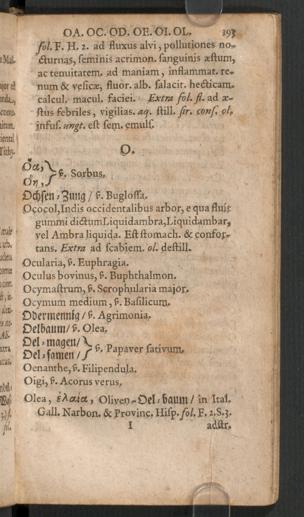 OA. OC. OD. OE. OI. OL. 193
fol. F. H. 2. ad fluxus alvi, pollutiones no-
cturnas, seminis acrimon. sanguinis æstum,
ac tenuitatem. ad maniam, inflammat. re-
num & vesicæ, fluor. alb. salacit. hecticam.
calcul. macul. faciei. Extra fol. fl. ad æ-
stus febriles, vigilias. aq. still. sir. cons. ol.
infus. ungt. est sem. emuls.
O.
Οα,
Οη, s. Sorbus.
Ochsen-Zung / s. Buglossa.
Ococol, Indis occidentalibus arbor, e qua fluit
gummi dictum Liquidambra, Liquidambar,
vel Ambra liquida. Est stomach. & confor-
tans. Extra ad scabiem. ol. destill.
Ocularia, s. Euphragia.
Oculus bovinus, s. Buphthalmon.
Ocymastrum, s. Scrophularia major.
Ocymum medium, s. Basilicum.
Odermennig / s. Agrimonia.
Oelbaum / s. Olea.
Oel-magen /
Oel-samen / s. Papaver sativum.
Oenanthe, s. Filipendula.
Oigi, s. Acorus verus.
Olea, ἐλαία, Oliven-Oel-baum / in Ital.
Gall. Narbon. & Provinc. Hisp. fol. F. 2. S. 3.
I adstr.